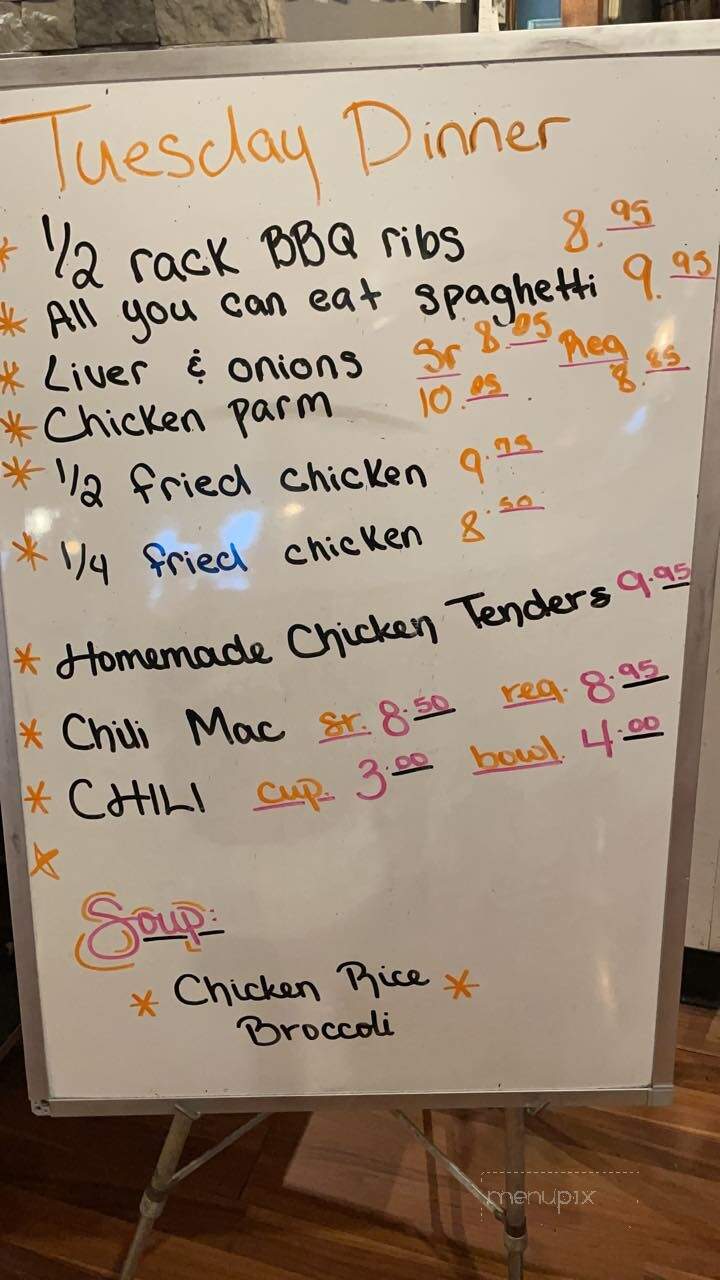 Tuesday Dinner
* 1/2 rack BBQ ribs 8.95
* All you can eat spaghetti 9.95
* Liver & onions Sr 8.05 Reg 8.85
* Chicken parm 10.05
* 1/2 fried chicken 9.75
* 1/4 fried chicken 8.50
* Homemade Chicken Tenders 9.95
* Chili Mac Sr. 8.50 reg. 8.95
* CHILI cup. 3.00 bowl. 4.00
*
Soup:
* Chicken Rice *
Broccoli
menupix